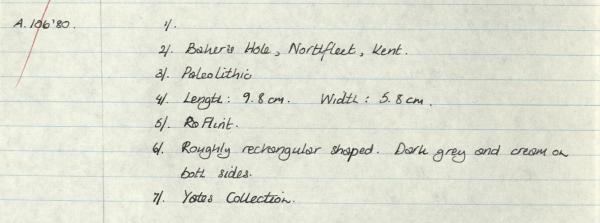 A.106'80. 1/.
2/. Baker's Hole, Northfleet, Kent.
3/. Paleolithic
4/. Length: 9.8cm. Width: 5.8cm.
5/. Ro Flint.
6/. Roughly rechangular shaped. Dark grey and cream on
both sides.
7/. Yates Collection.